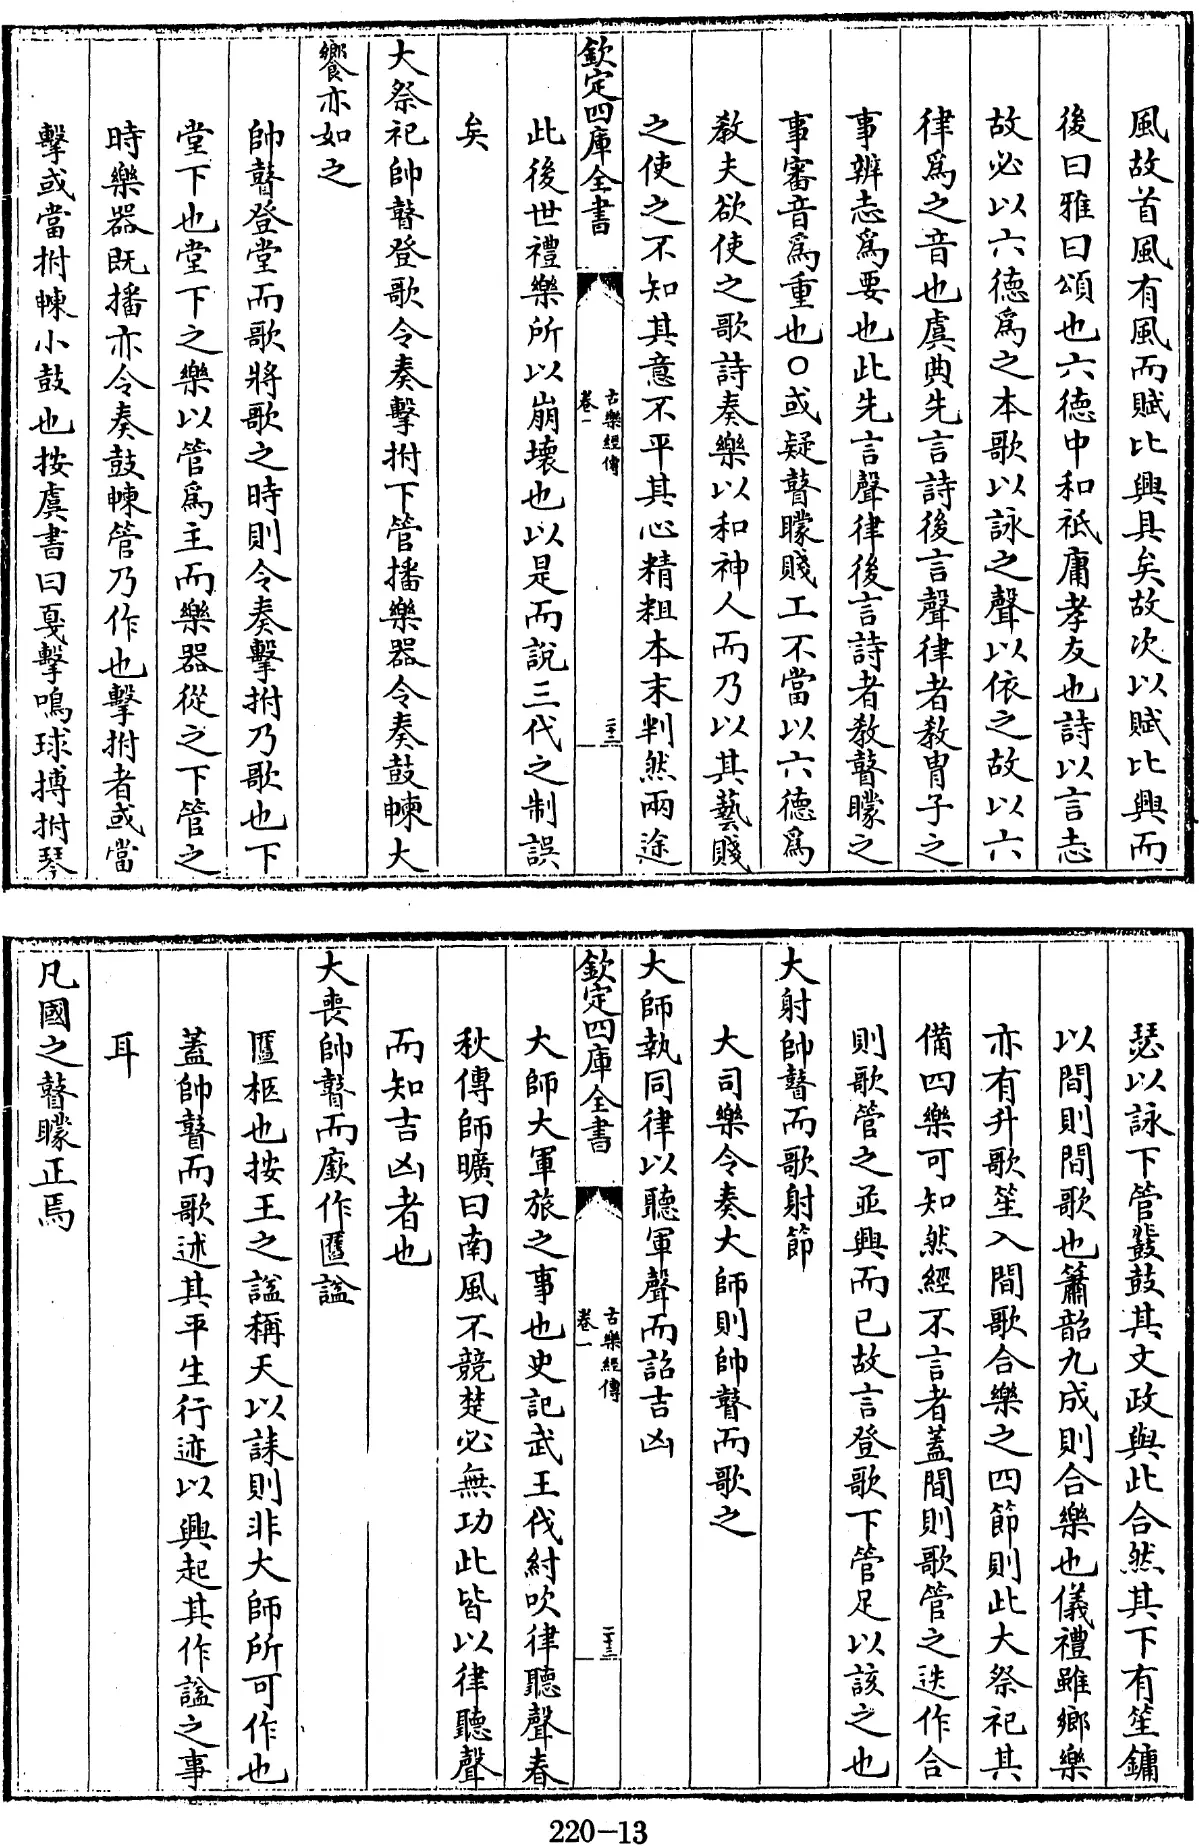 風故首風有風而賦比興具矣故次以賦比興而
後曰雅曰頌也六德中和祗庸孝友也詩以言志
故必以六德爲之本歌以詠之聲以依之故以六
律爲之音也虞典先言詩後言聲律者敎胄子之
事辨志爲要也此先言聲律後言詩者敎瞽矇之
事審音爲重也○或疑瞽矇賤工不當以六德爲
敎夫欲使之歌詩奏樂以和神人而乃以其藝賤
之使之不知其意不平其心精粗本末判然兩途
欽定四庫全書
古樂經傳
卷一
二十二
此後世禮樂所以崩壞也以是而說三代之制誤
矣
大祭祀帥瞽登歌令奏擊拊下管播樂器令奏鼓朄大
饗亦如之
帥瞽登堂而歌將歌之時則令奏擊拊乃歌也下
堂下也堂下之樂以管爲主而樂器從之下管之
時樂器既播亦令奏鼓朄管乃作也擊拊者或當
擊或當拊朄小鼓也按虞書曰戛擊鳴球搏拊琴
瑟以詠下管鼗鼓其文政與此合然其下有笙鏞
以間則間歌也簫韶九成則合樂也儀禮雖鄉樂
亦有升歌笙入間歌合樂之四節則此大祭祀其
備四樂可知然經不言者蓋間則歌管之迭作合
則歌管之並興而已故言登歌下管足以該之也
大射帥瞽而歌射節
大司樂令奏大師則帥瞽而歌之
大師執同律以聽軍聲而詔吉凶
欽定四庫全書
古樂經傳
卷一
二十三
大師大軍旅之事也史記武王伐紂吹律聽聲春
秋傳師曠曰南風不競楚必無功此皆以律聽聲
而知吉凶者也
大喪帥瞽而廞作匶諡
匶柩也按王之諡稱天以誄則非大師所可作也
蓋帥瞽而歌述其平生行迹以興起其作諡之事
耳
凡國之瞽矇正焉
220-13